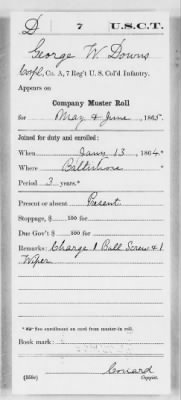 D 7 U.S.C.T.
George W. Downs
Corpl, Co. A, 7 Reg't U. S. Col'd Infantry.
Appears on
Company Muster Roll
for May & June, 1865.
Joined for duty and enrolled:
When Jany 13, 1864.*
Where Baltimore *
Period 3 years.*
Present or absent Present
Stoppage, $ 100 for
Due Gov't $ 100 for
Remarks: Charge 1 Ball Screw & 1
Wiper
* See enrollment on card from muster-in roll.
Book mark:
Conard
(358c) Copyist.